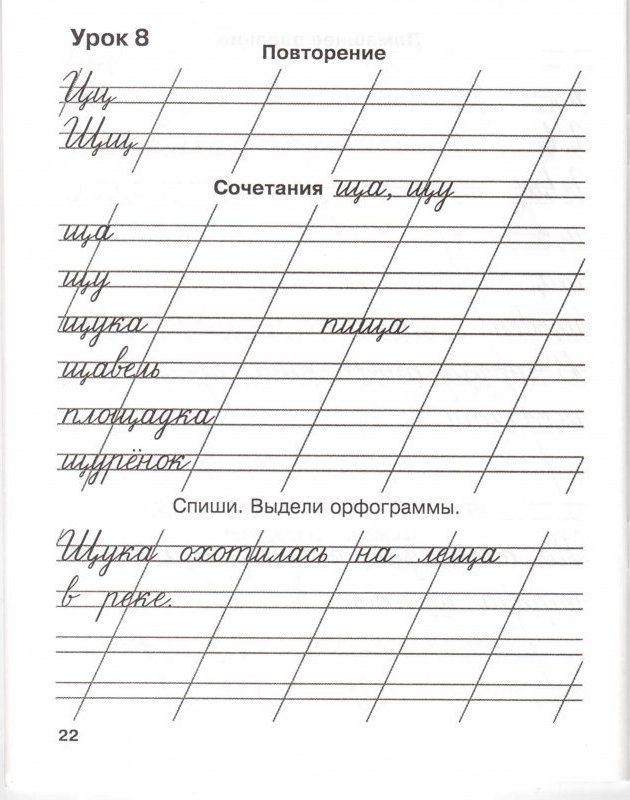 Урок 8
Повторение
Цц
Щщ
Сочетания ща, щу
ща
щу
щука пища
щавель
площадка
щурёнок
Спиши. Выдели орфограммы.
Щука охотилась на леща
в реке.
22